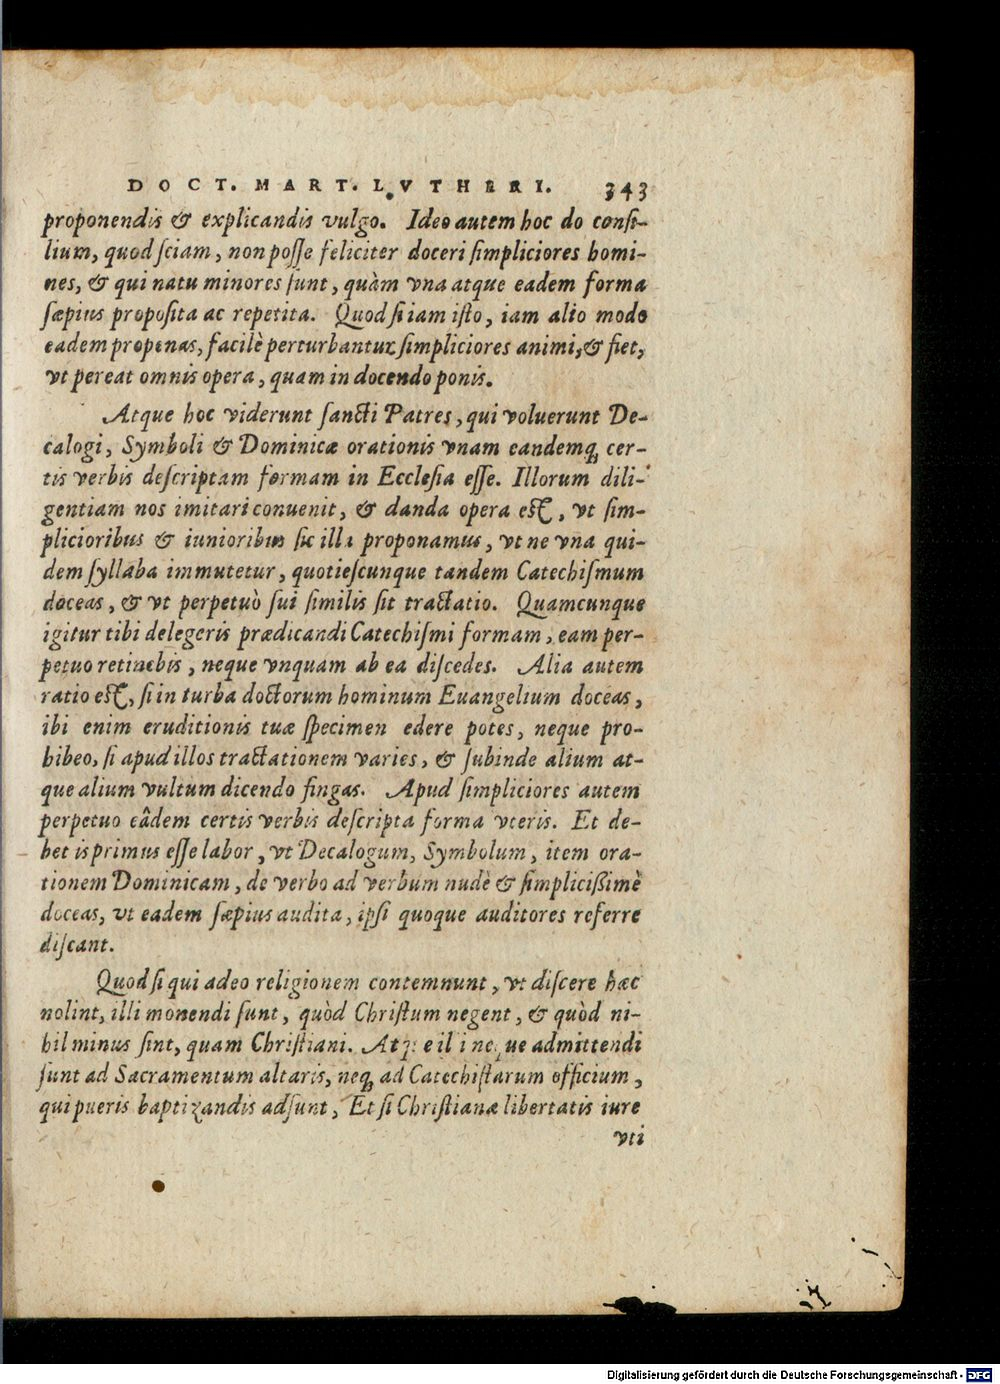 DOCT. MART. LVTHERI. 343
proponendis & explicandis vulgo. Ideo autem hoc do consi-
lium, quod sciam, non posse feliciter doceri simpliciores homi-
nes, & qui natu minores sunt, quàm vna atque eadem forma
sæpius proposita ac repetita. Quod si iam isto, iam alio modo
eadem proponas, facilè perturbantur simpliciores animi, & fiet,
vt pereat omnis opera, quam in docendo ponis.
Atque hoc viderunt sancti Patres, qui voluerunt De-
calogi, Symboli & Dominicæ orationis vnam eandemq́ cer-
tis verbis descriptam formam in Ecclesia esse. Illorum dili-
gentiam nos imitari conuenit, & danda opera est, vt sim-
plicioribus & iunioribus sic illa proponamus, vt ne vna qui-
dem syllaba immutetur, quotiescunque tandem Catechismum
doceas, & vt perpetuò sui similis sit tractatio. Quamcunque
igitur tibi delegeris prædicandi Catechismi formam, eam per-
petuo retinebis, neque vnquam ab ea discedes. Alia autem
ratio est, si in turba doctorum hominum Euangelium doceas,
ibi enim eruditionis tuæ specimen edere potes, neque pro-
hibeo, si apud illos tractationem varies, & subinde alium at-
que alium vultum dicendo fingas. Apud simpliciores autem
perpetuo eâdem certis verbis descripta forma vteris. Et de-
bet is primus esse labor, vt Decalogum, Symbolum, item ora-
tionem Dominicam, de verbo ad verbum nudè & simplicißimè
doceas, vt eadem sæpius audita, ipsi quoque auditores referre
discant.
Quod si qui adeo religionem contemnunt, vt discere hæc
nolint, illi monendi sunt, quòd Christum negent, & quòd ni-
hil minus sint, quam Christiani. Atq; neque admittendi
sunt ad Sacramentum altaris, neq́ ad Catechistarum officium,
qui pueris baptizandis adsunt, Et si Christianæ libertatis iure
vti
Digitalisierung gefördert durch die Deutsche Forschungsgemeinschaft - DFG